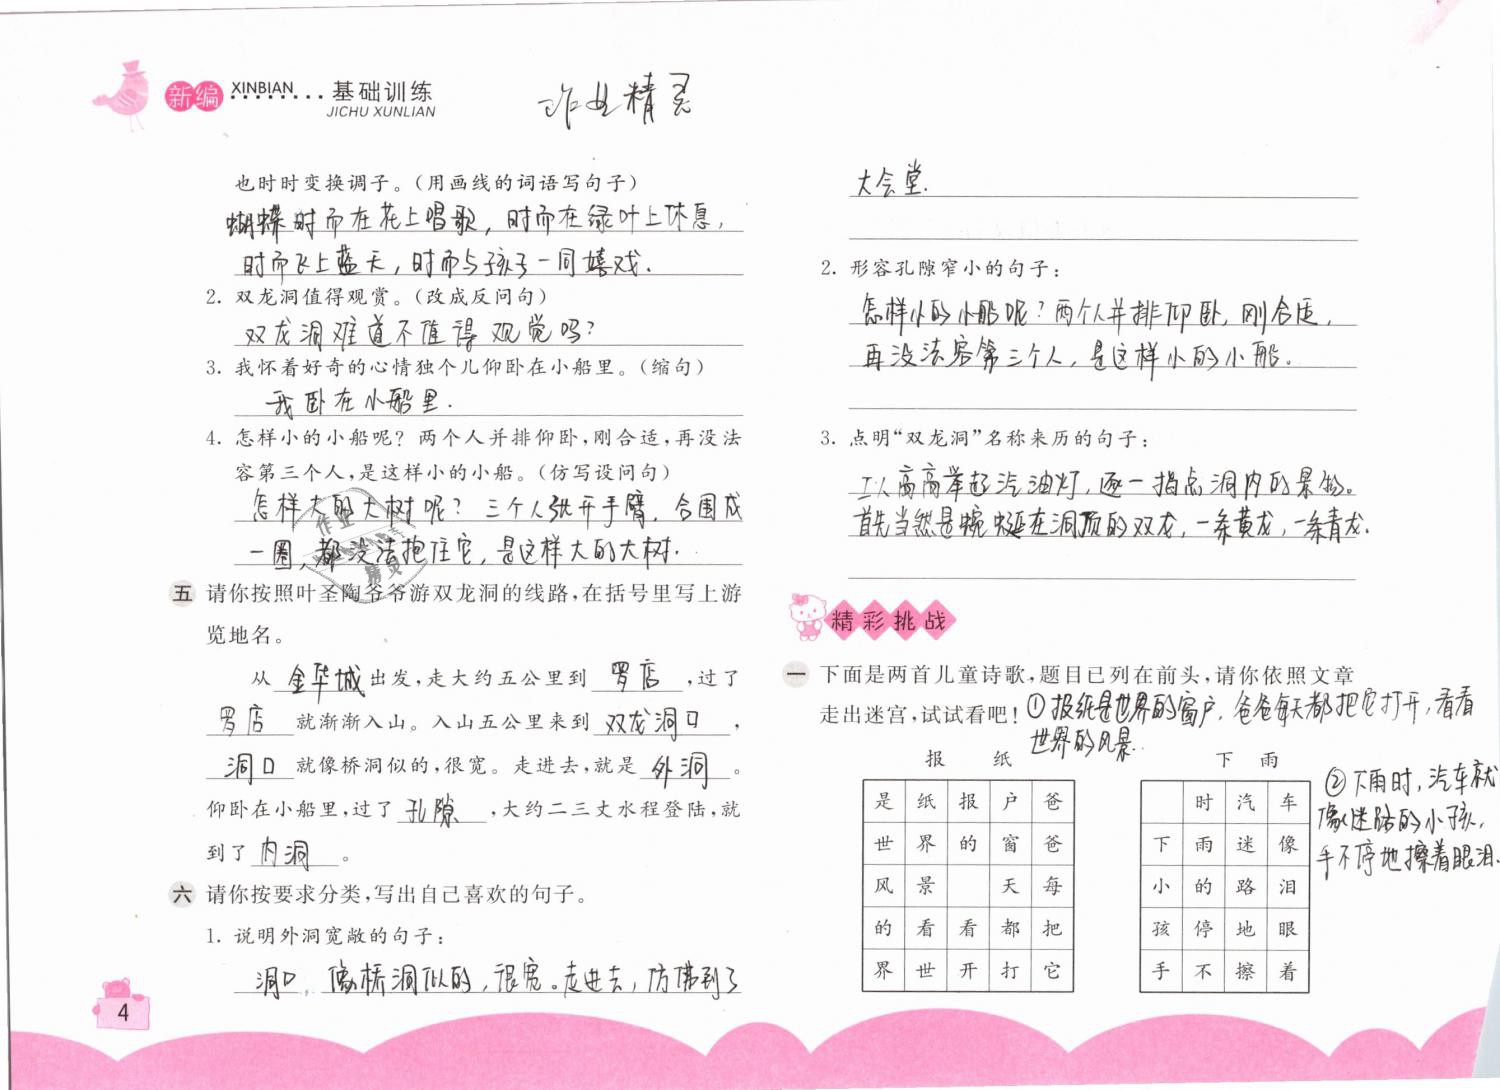 新编
XINBIAN
基础训练
JICHU XUNLIAN
作业精灵
也时时变换调子。(用画线的词语写句子)
蝴蝶时而在花上唱歌，时而在绿叶上休息，
时而飞上蓝天，时而与孩子一同嬉戏.
2. 双龙洞值得观赏。(改成反问句)
双龙洞难道不值得观觉吗?
3. 我怀着好奇的心情独个儿仰卧在小船里。(缩句)
我卧在小船里.
4. 怎样小的小船呢? 两个人并排仰卧,刚合适,再没法
容第三个人,是这样小的小船。(仿写设问句)
怎样大的大树呢? 三个人张开手臂，合围成
一圈，都没法抱住它，是这样大的大树.
作业
精灵
五 请你按照叶圣陶爷爷游双龙洞的线路,在括号里写上游
览地名。
从 金华城 出发,走大约五公里到 罗店 ,过了
罗店 就渐渐入山。入山五公里来到 双龙洞口 ,
洞口 就像桥洞似的,很宽。走进去,就是 外洞 。
仰卧在小船里,过了 孔隙 ,大约二三丈水程登陆,就
到了 内洞 。
六 请你按要求分类,写出自己喜欢的句子。
1. 说明外洞宽敞的句子:
洞口 像桥洞似的，很宽。走进去，仿佛到了
4
大会堂.
2. 形容孔隙窄小的句子:
怎样小的小船呢? 两个人并排仰卧，刚合适，
再没法容第三个人，是这样小的小船。
3. 点明“双龙洞”名称来历的句子:
工人高高举起汽油灯，逐一指点洞内的景物。
首先当然是蜿蜒在洞顶的双龙，一条黄龙，一条青龙.
精彩挑战
一 下面是两首儿童诗歌,题目已列在前头,请你依照文章
走出迷宫,试试看吧!
①报纸是世界的窗户，爸爸每天都把它打开，看看
世界的风景.
报 纸
是 纸 报 户 爸
世 界 的 窗 爸
风 景 天 每
的 看 看 都 把
界 世 开 打 它
下 雨
时 汽 车
下 雨 迷 像
小 的 路 泪
孩 停 地 眼
手 不 擦 着
②下雨时，汽车就
像迷路的小孩，
手不停地擦着眼泪.